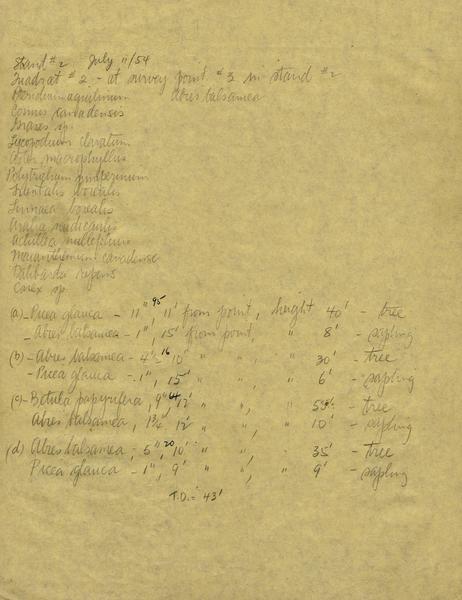 Stand #2 July 11/54
Quadrat #2 - at survey point #3 in stand #2
Pteridium aquilinum Abies balsamea
Cornus canadensis
Grases sp.
Lycopodium clavatum
Aster macrophyllus
Polytrichum juniperinum
Trientalis borealis
Linnaea borealis
Aralia nudicaulis
Achillea millefolium
Maianthemum canadense
Dalibarda repens
Carex sp.
(a) - Picea glauca - 11", 95 11' from point, height 40' - tree
- Abies balsamea - 1", 15' from point, " 8' - sapling
(b) - Abies balsamea - 4" 16 10' " " , " 30' - tree
- Picea glauca - 1", 15' " " , " 6' - sapling
(c) - Betula papyrifera, 9" 64 12' " " , " 55' - tree
Abies balsamea, 1¾", 12' " " , " 10' - sapling
(d) Abies balsamea, 5", 20 10' " " " 35' - tree
Picea glauca - 1", 9' " " , " 9' - sapling
T.D. = 43'